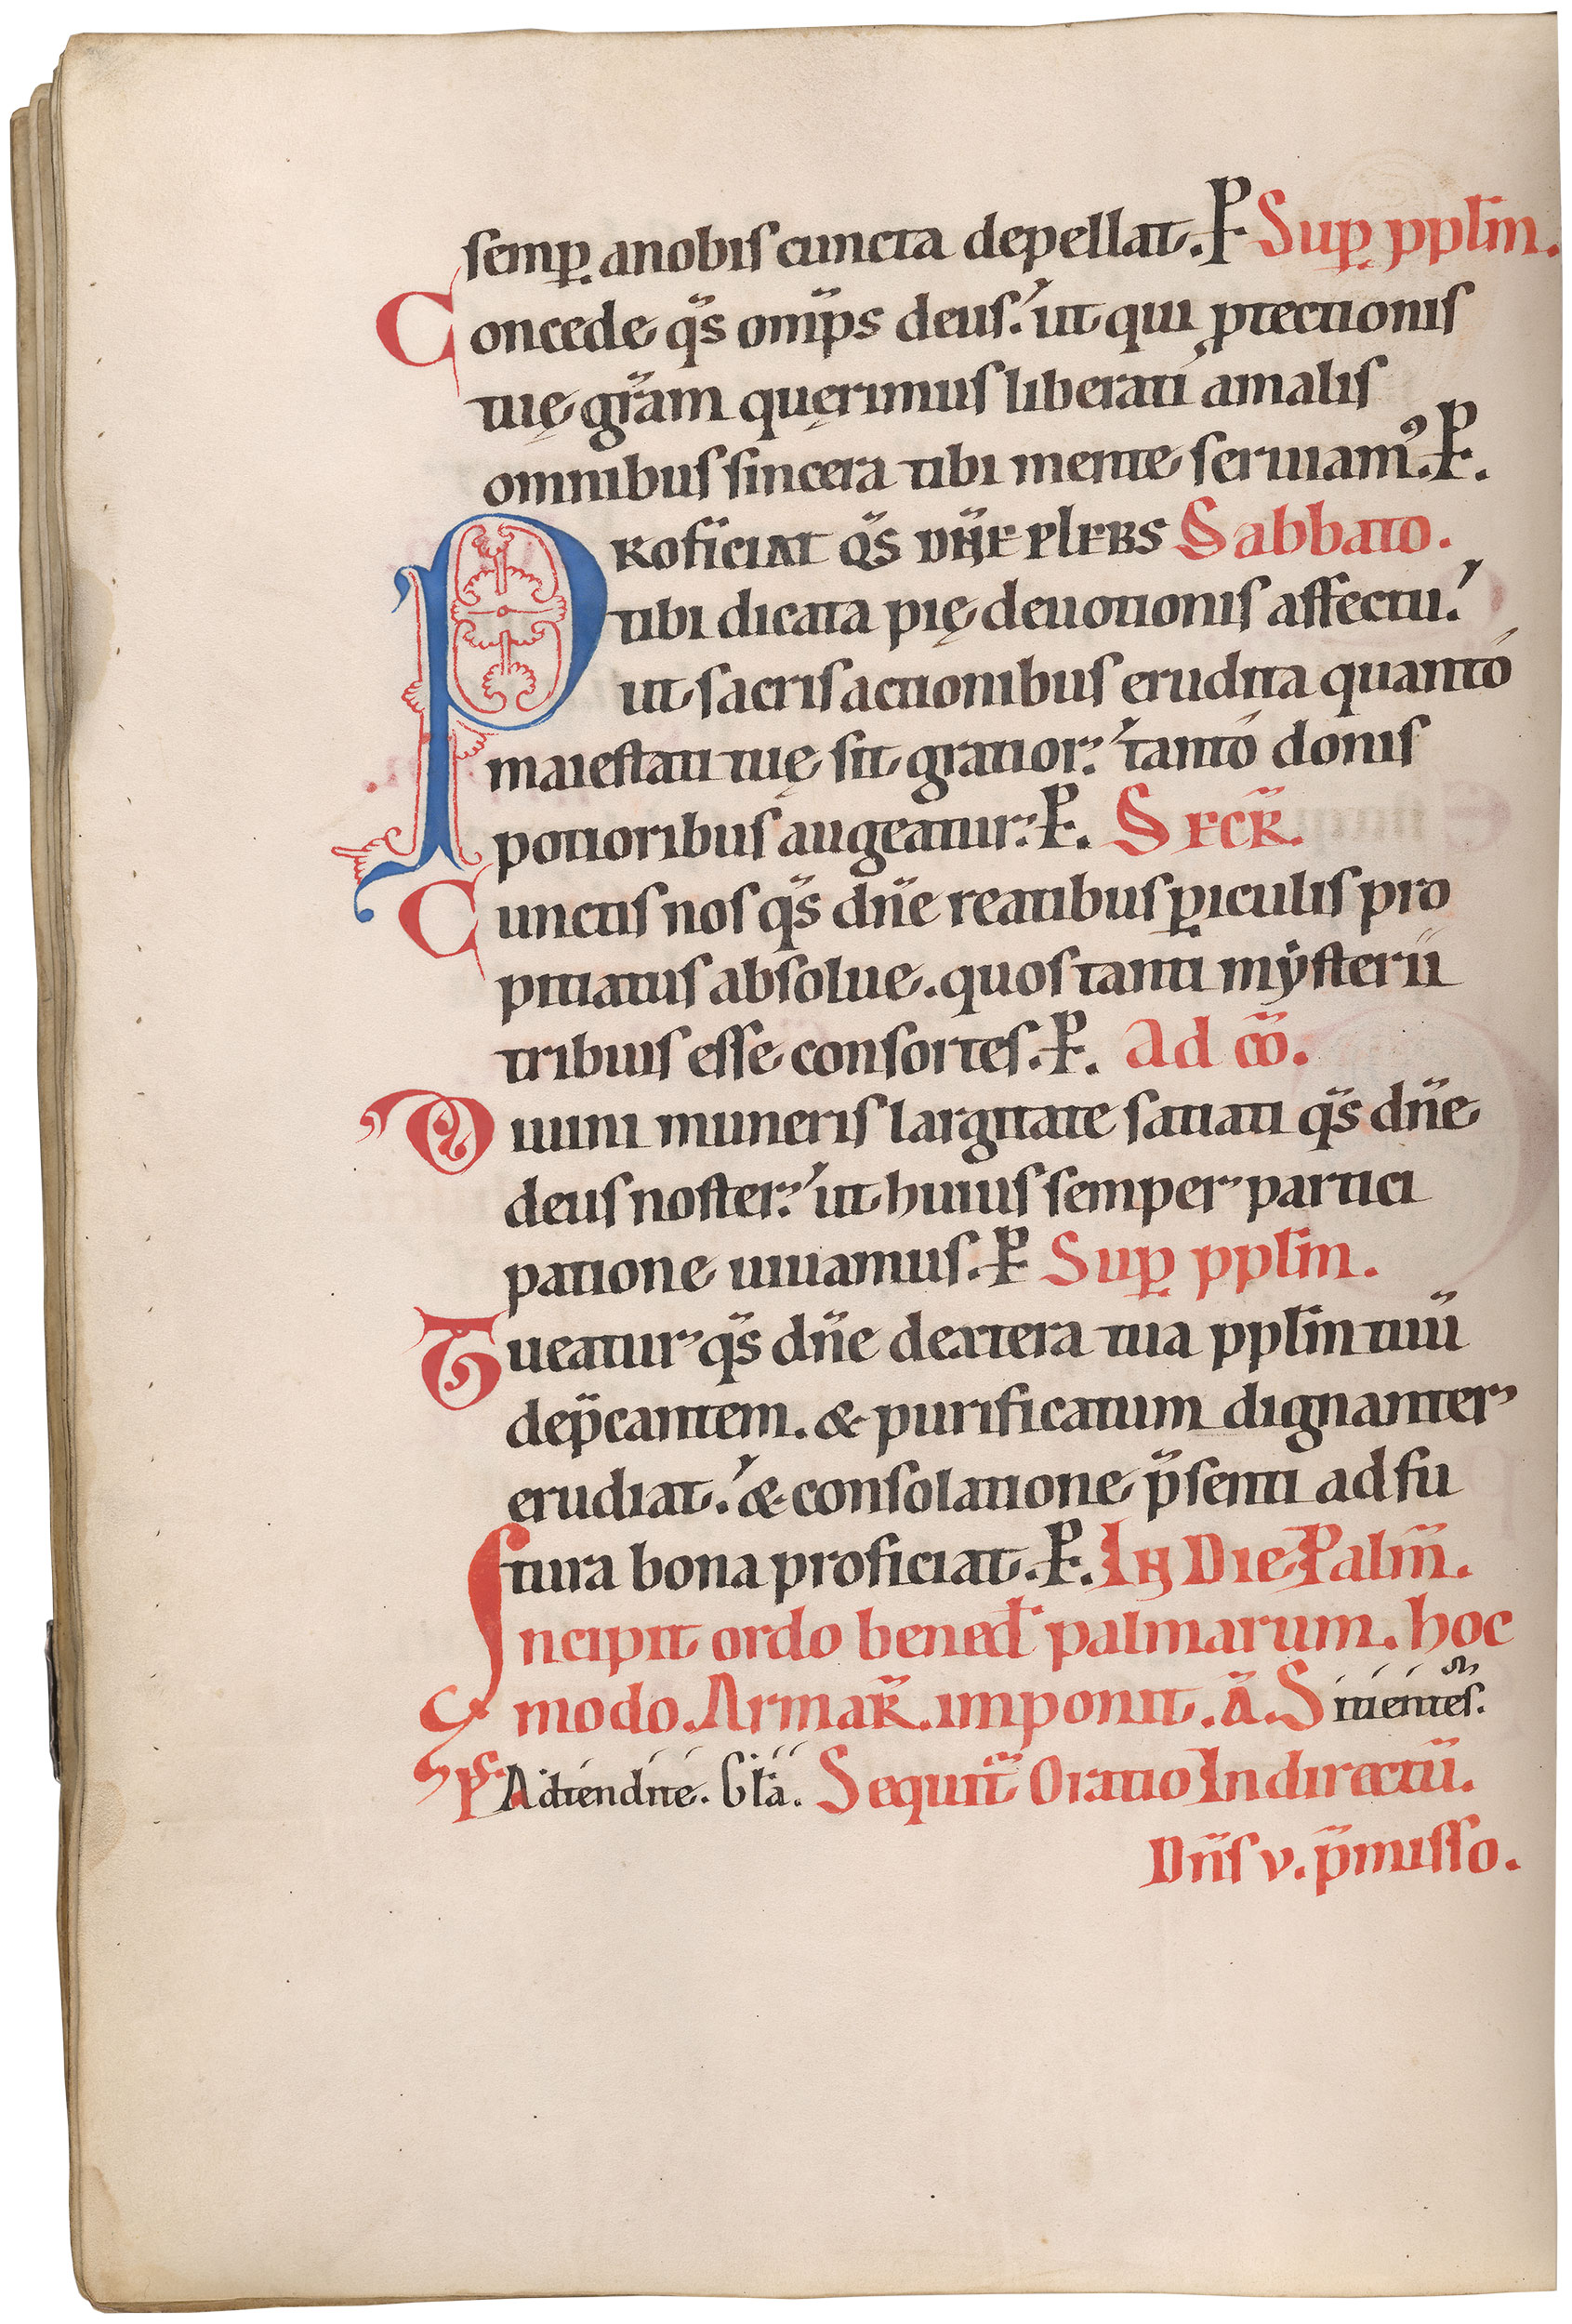 semꝑ anobis cuncta depellat. P Suꝑ pplm̄.
Concede qs̄ omp̄s deus. ut qui ꝓtectionis
tuę grām quęrimus liberati amalis
omnibus sincera tibi mente seruiamꝰ. P.
PROFICIAT QS̄ DN̄E PLEBS Sabbato.
tibi dicata pię deuotionis affectu.
ut sacris actionibus erudita quantó
maiestati tuę sit gratior. tantó donis
potioribus augeatur. P. SECR̄.
Cunctis nos qs̄ dn̄e reatibus ꝑiculis pro
pitiatus absolue. quos tanti mẏsterii
tribuis esse consortes. P. Ad cō̄.
Diuini muneris largitate satiati qs̄ dn̄e
deus noster. ut huius semper partici
patione uiuamus. P Suꝑ pplm̄.
Tueatur qs̄ dn̄e dextera tua pplm̄ tuū
dep̄cantem. & purificatum dignanter
erudiat. & consolatione p̄senti ad fu
tura bona proficiat. P. IN Die Palm̄.
Incipit ordo bened̄ palmarum. hoc
modo. Armar̄. imponit. ā. Sitientes.
ps̄. Adtendite. Glā. Sequit̄ Oratio Indirectū.
Dn̄s v. p̄misso.